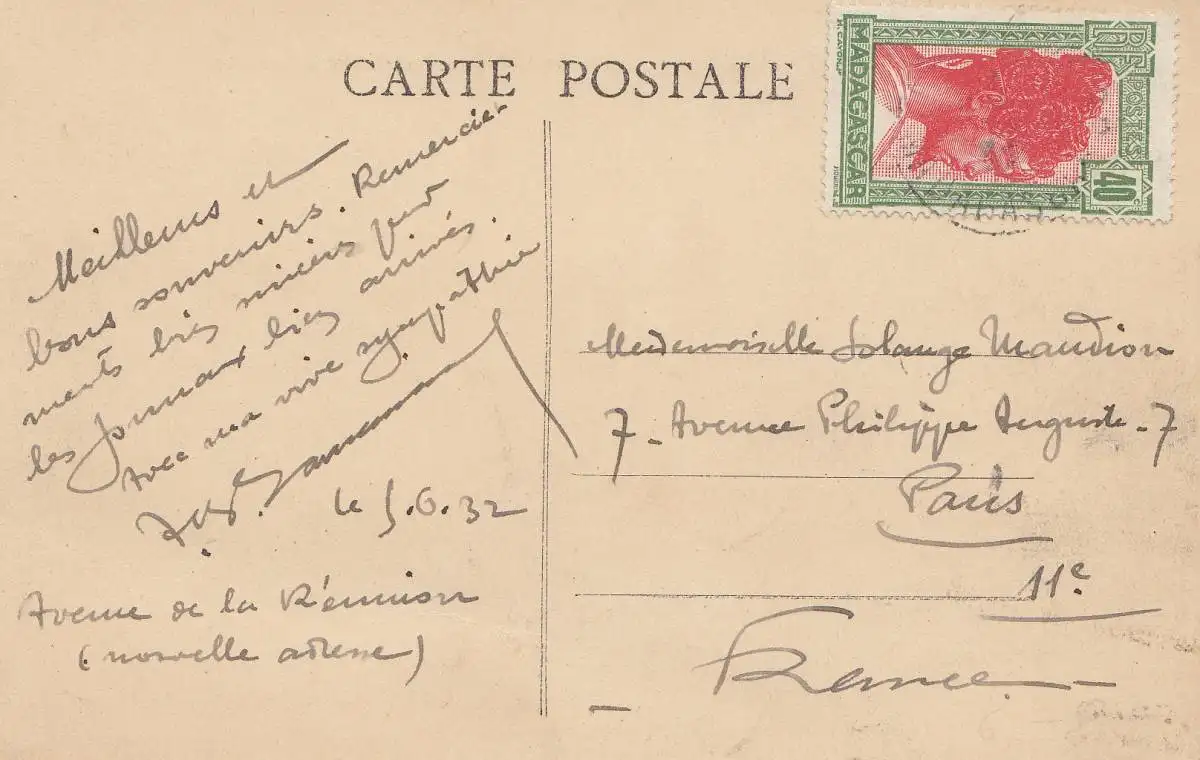 CARTE POSTALE
RF
POSTES
MADAGASCAR
40c
Meilleurs et
bons souvenirs. Remercie-
ments très sincères pour
les journaux bien arrivés.
Avec ma vive sympathie
le 5.6.32
Avenue de la Réunion
(nouvelle adresse)
Mademoiselle Solange Maudion
7 - Avenue Philippe Auguste - 7
Paris
11e
France